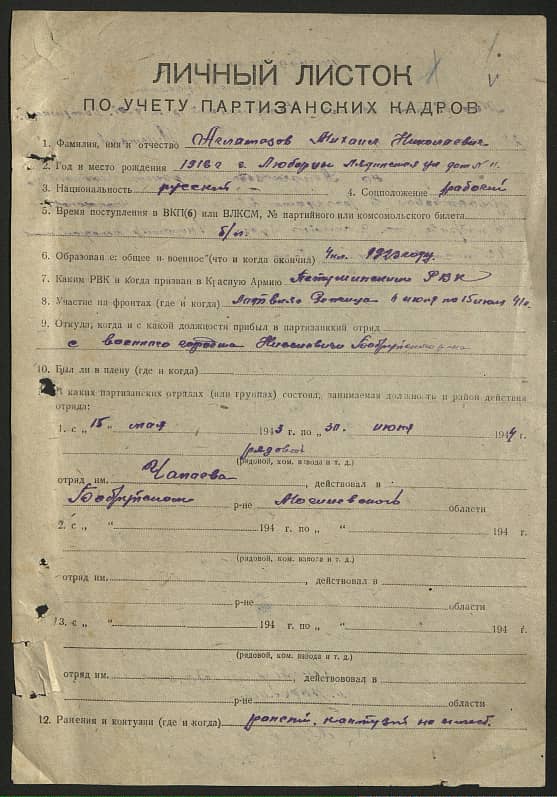 ЛИЧНЫЙ ЛИСТОК
ПО УЧЕТУ ПАРТИЗАНСКИХ КАДРОВ
1. Фамилия, имя и отчество Михаил Николаевич
2. Год и место рождения 1918 г г. Люберцы
3. Национальность русский. 4. Соцположение рабочий
5. Время поступления в ВКП(б) или ВЛКСМ, № партийного или комсомольского билета
б/п.
6. Образование: общее и военное (что и когда окончил) 4 кл.
7. Каким РВК и когда призван в Красную Армию Петушинского РВК
8. Участие на фронтах (где и когда) июня по 15 июля 41 г.
9. Откуда, когда и с какой должности прибыл в партизанский отряд
с военного городка Киселевичи Бобруйского р-на
10. Был ли в плену (где и когда)
11. В каких партизанских отрядах (или группах) состоял, занимаемая должность и район действия
отряда:
1. с „15 мая 1943 г. по „30. июня 1944 г.
рядовой
(рядовой, ком. взвода и т. д.)
отряд им. Чапаева, действовал в
Бобруйском р-не Могилевской области
2. с „ “ 194 г. по „ “ 194 г.
(рядовой, ком. взвода и т. д.)
отряд им. , действовал в
р-не области
3. с „ “ 194 г. по „ “ 194 г.
(рядовой, ком. взвода и т. д.)
отряд им. , действововал в
р-не области
12. Ранения и контузии (где и когда) ранений, контузий не имеет.